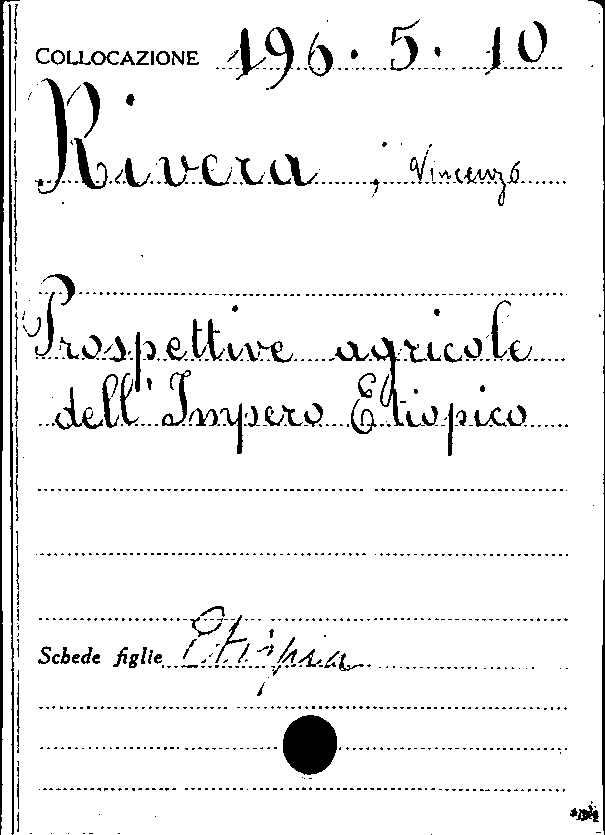 COLLOCAZIONE 196. 5. 10
Rivera, Vincenzo
Prospettive agricole
dell'Impero Etiopico
Schede figlie Etiopia